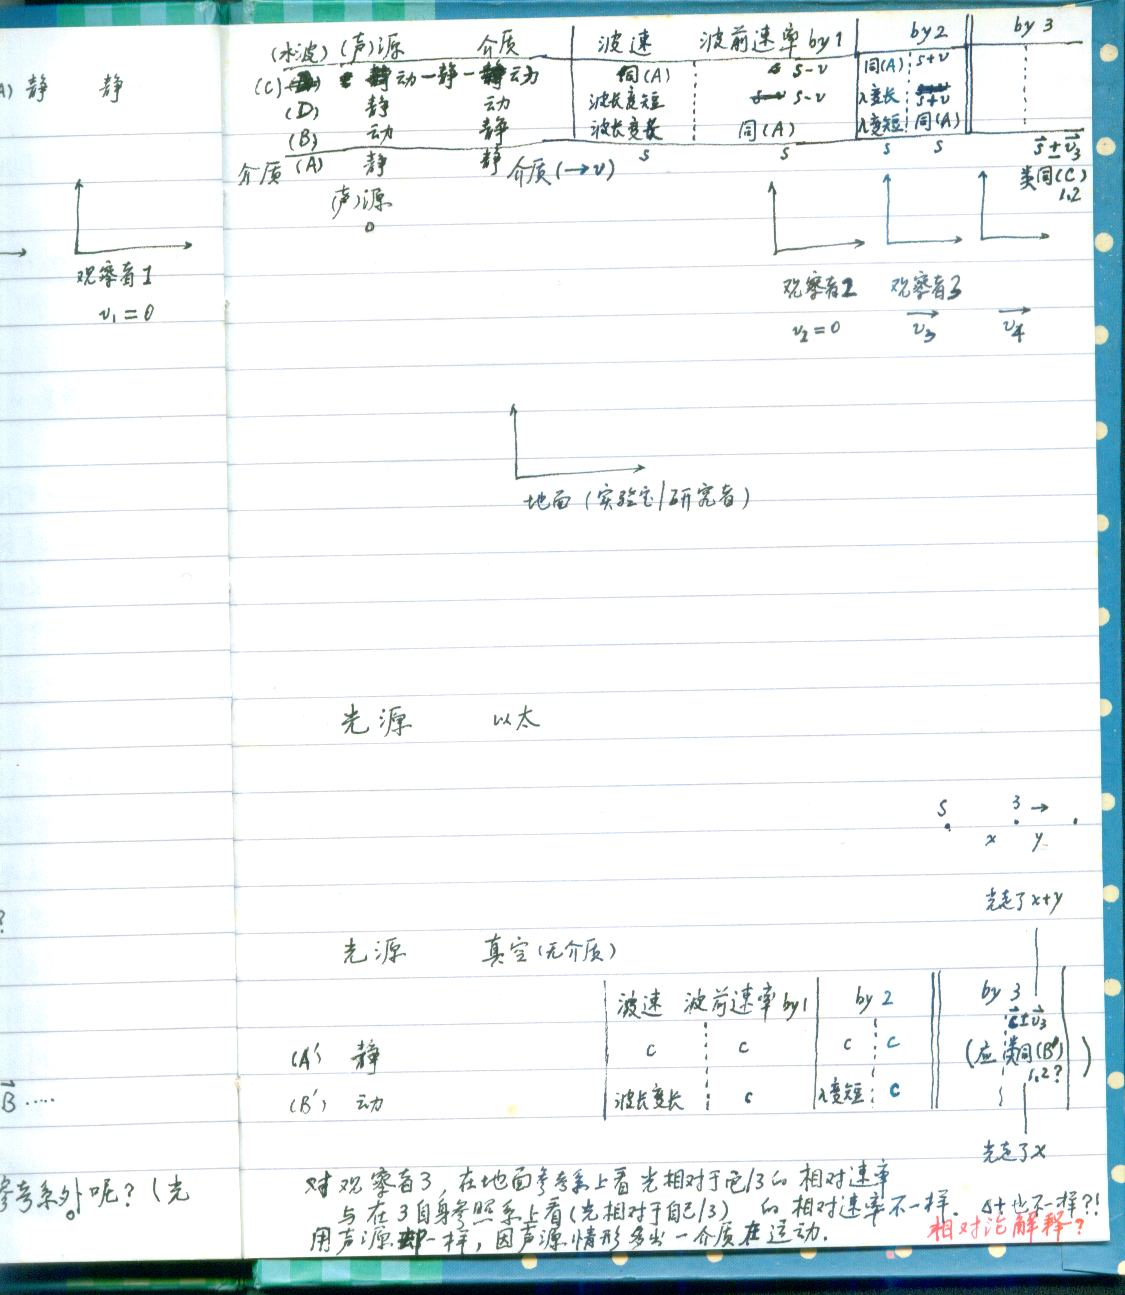 A) 静 静
观察者1
v₁=0
?
B⃗ ·····
参考系外呢?(光
(水波)(声)源 介质 波速 波前速率 by 1 by 2 by 3
(C) 动-静-动 同(A) s-v 同(A) s+v
(D) 静 动 波长变短 s-v λ变长 s+v
(B) 动 静 波长变长 同(A) λ变短 同(A)
介质 (A) 静 静 介质(→v) s s s s s⃗±v⃗₃
类同(C)
1,2
(声)源
观察者2 观察者3
v₂=0 v₃ v₄
地面(实验室/研究者)
光源 以太
S 3→
x y
光走了x+y
光源 真空(无介质)
波速 波前速率 by 1 by 2 by 3
c⃗±v⃗₃
(A') 静 c c c c (应类同(B')
1,2?)
(B') 动 波长变长 c λ变短 c
光走了x
对观察者3,在地面参考系上看光相对于它/3的相对速率
与在3自身参照系上看(光相对于自己/3)的相对速率不一样。Δt也不一样?!
用声源却一样,因声源情形多出一介质在运动.
相对论解释?